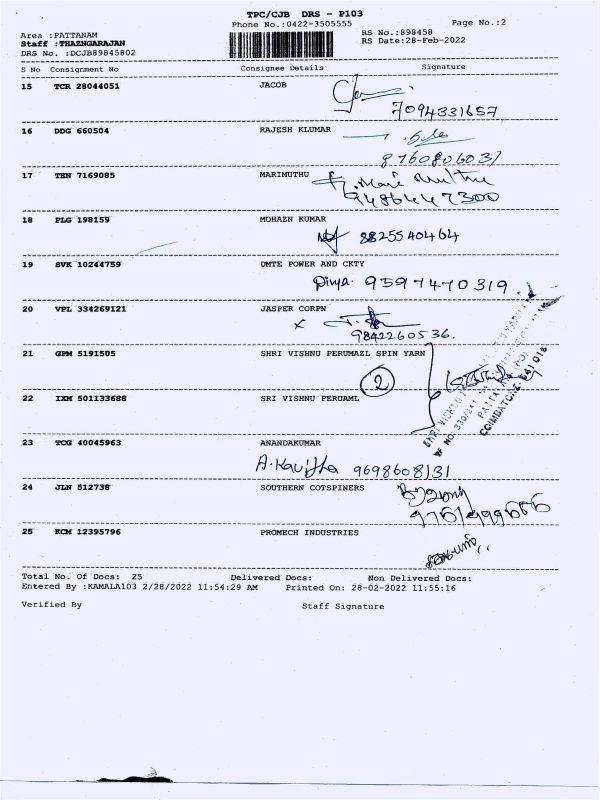 TPC/CJB DRS - P103
Phone No.:0422-3505555 Page No.:2
Area :PATTANAM RS No.:898458
Staff :THAZNGARAJAN RS Date:28-Feb-2022
DRS No. :DCJB89845802
S No Consignment No Consignee Details Signature
15 TCR 28044051 JACOB
7094331657
16 DDG 660504 RAJESH KLUMAR
8760806037
17 TEN 7169085 MARIMUTHU
9486447300
18 PLG 198159 MOHAZN KUMAR
8825540464
19 SVK 10244759 DMTE POWER AND CKTY
Divya 9597470319
20 VPL 334269121 JASPER CORPN
9842260536.
21 GPM 5191505 SHRI VISHNU PERUMAZL SPIN YARN
2
22 IXM 501133688 SRI VISHNU PERUAML
COIMBATORE-641 016
23 TCG 40045963 ANANDAKUMAR
A.Kavitha 9698608131
24 JLN 512738 SOUTHERN COTSPINERS
25 KCM 12395796 PROMECH INDUSTRIES
Total No. Of Docs: 25 Delivered Docs: Non Delivered Docs:
Entered By :KAMALA103 2/28/2022 11:54:29 AM Printed On: 28-02-2022 11:55:16
Verified By Staff Signature